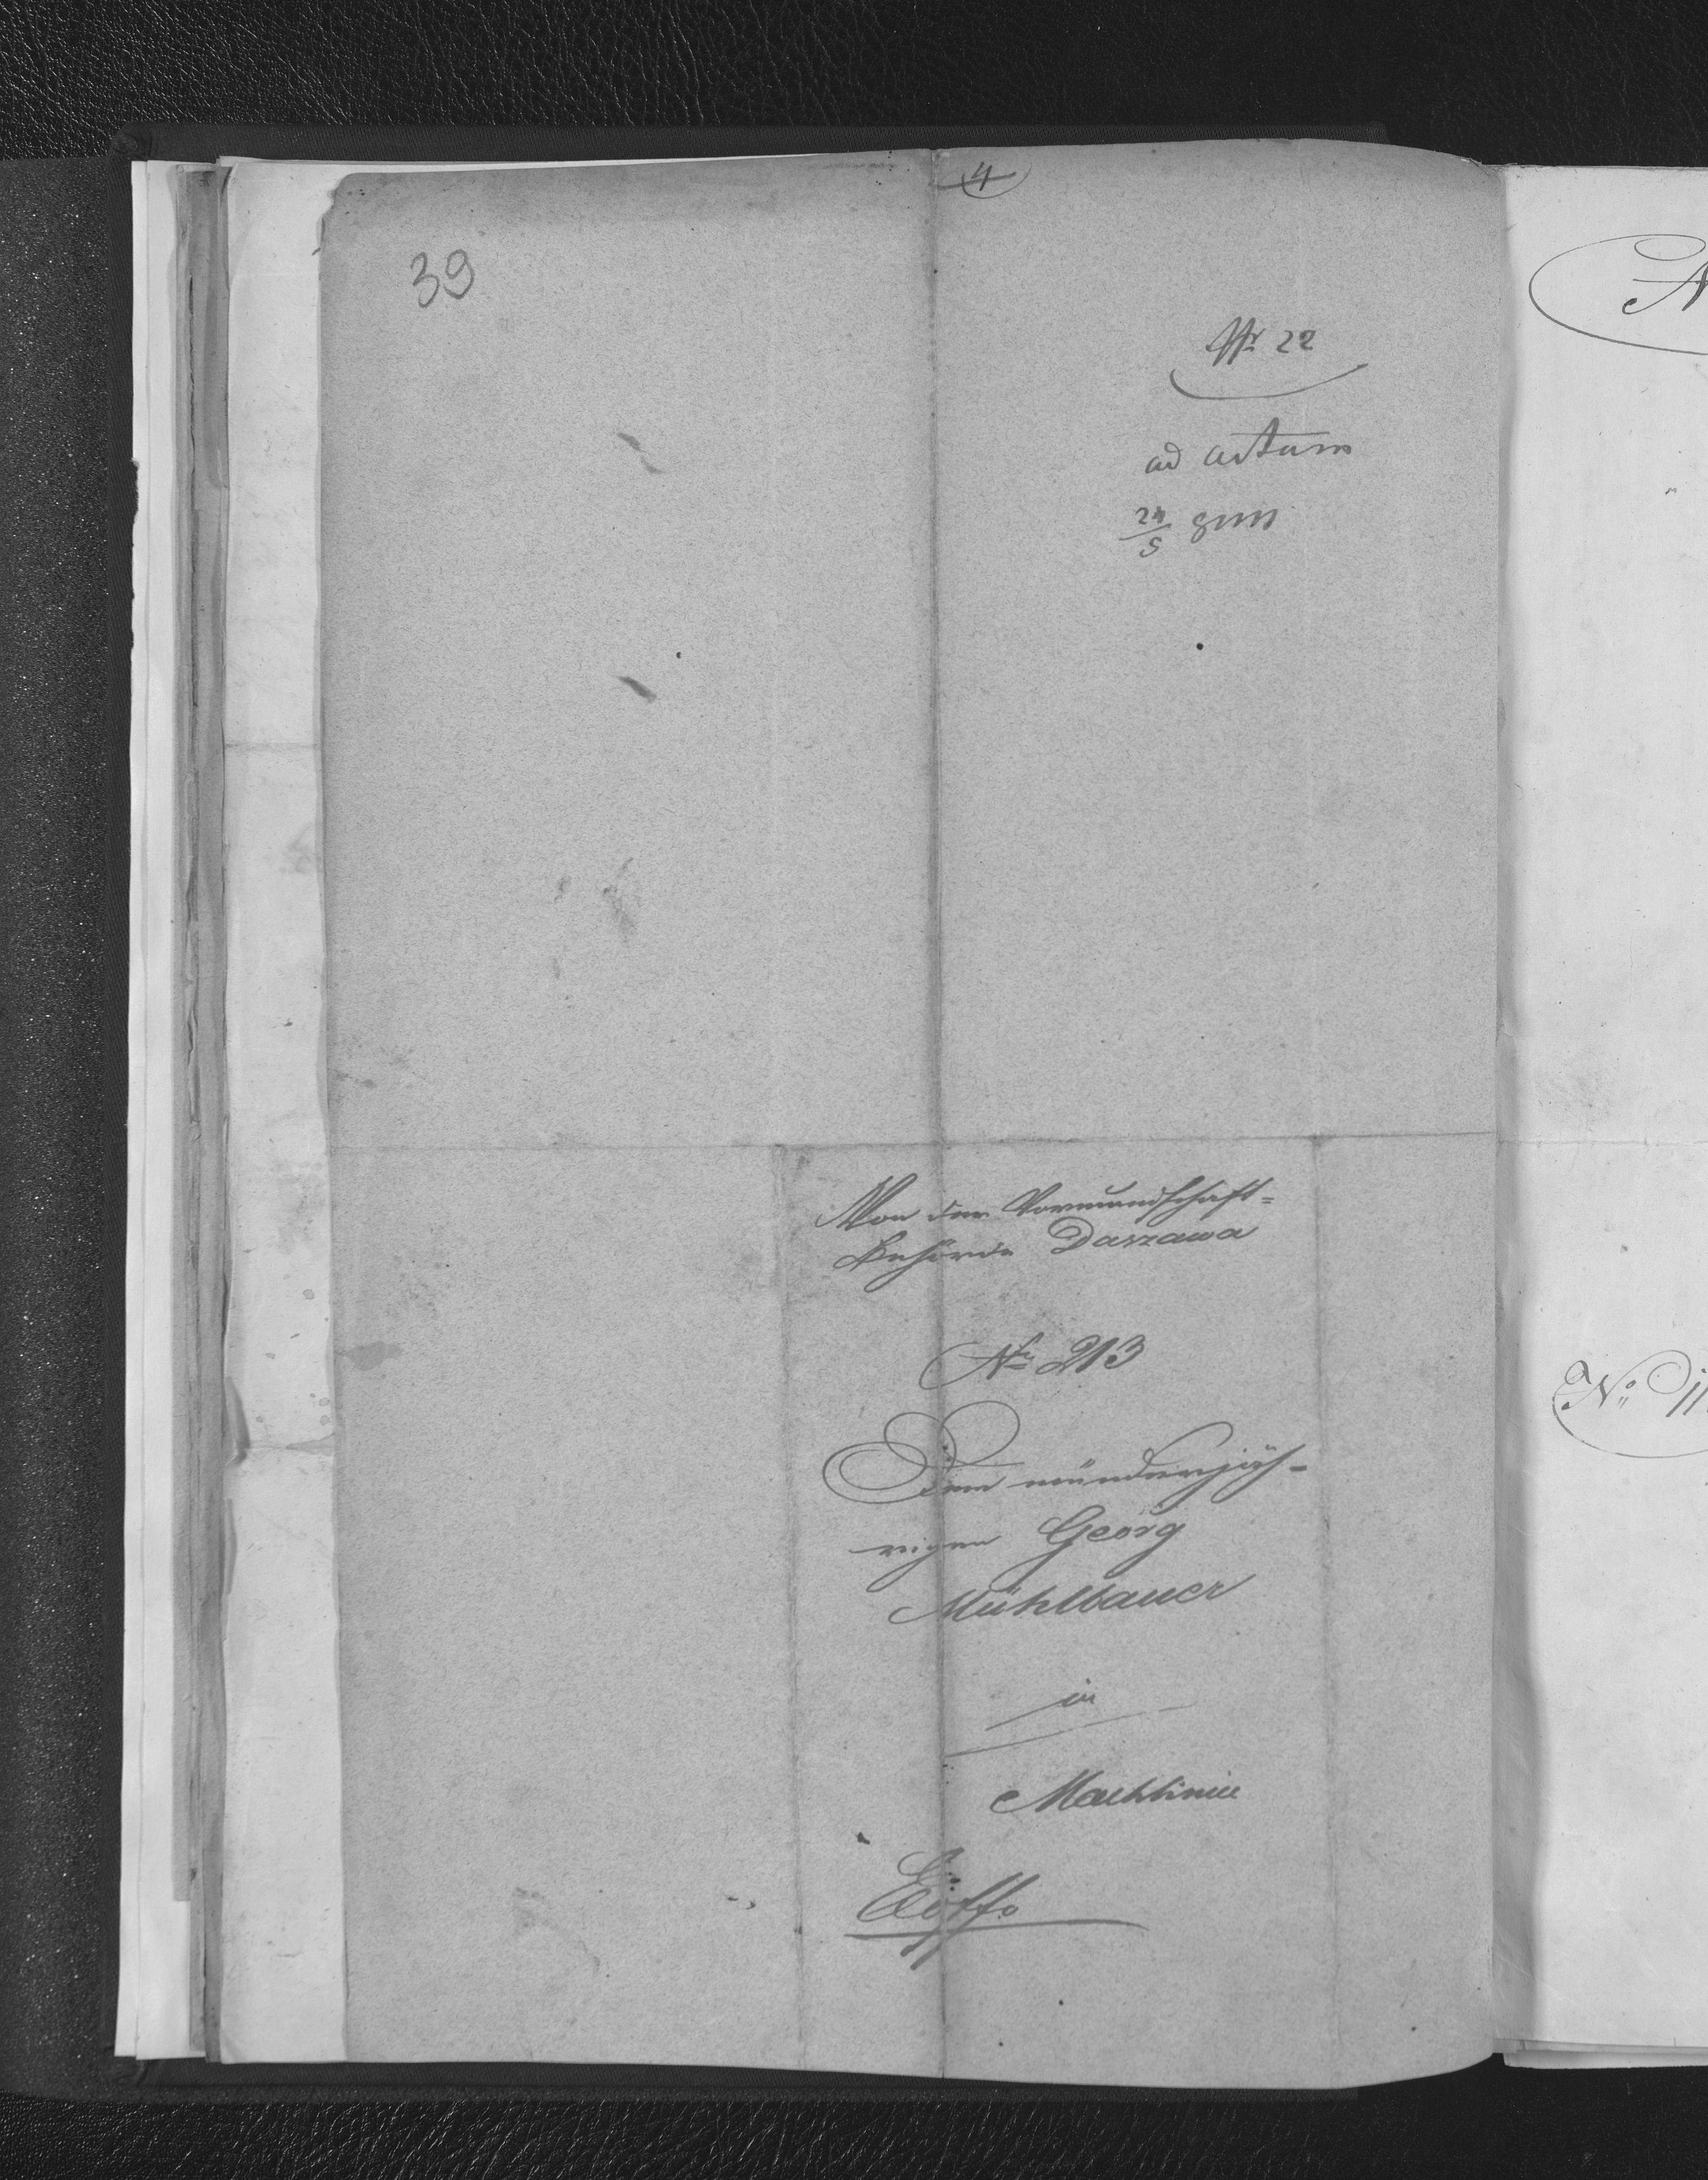 4
39
Nr 22
ad actum
24/5
Von der Vormundschaft-
behörde Daszawa
Nr 213
Dem münderjäh-
rigen Georg
Mühlbauer
in
Machliniec
No